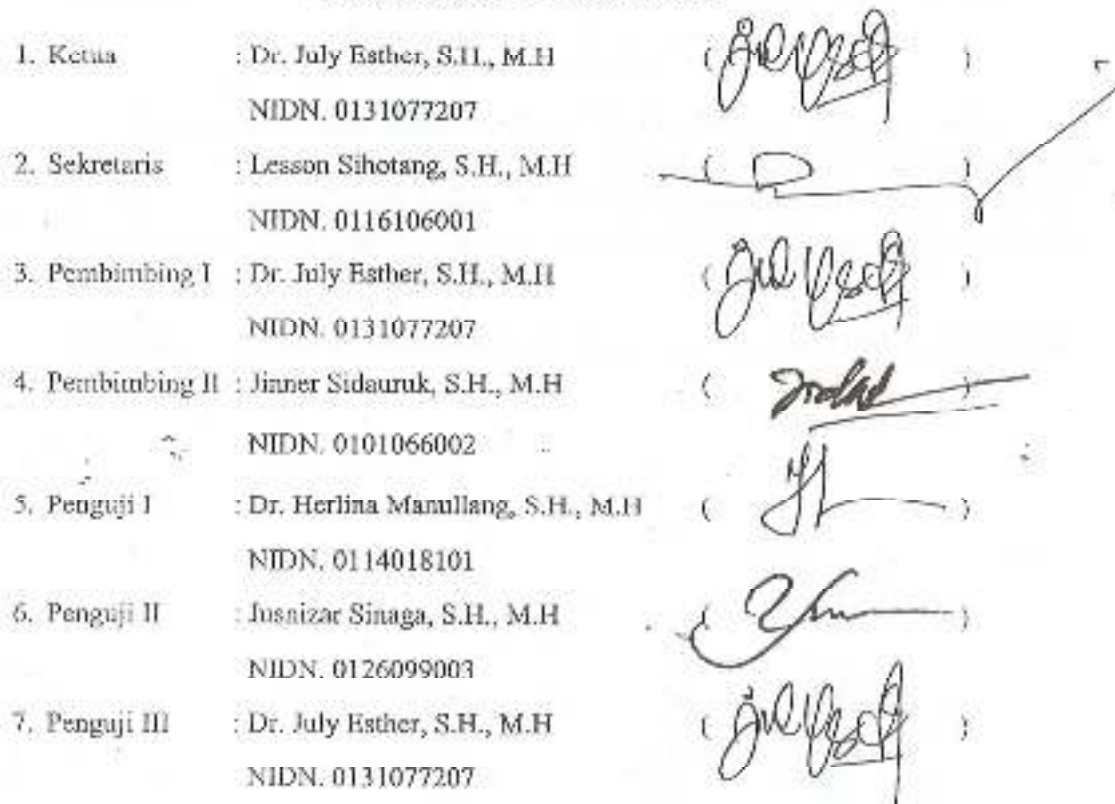 1. Ketua : Dr. July Esther, S.H., M.H ( )
NIDN. 0131077207
2. Sekretaris : Lesson Sihotang, S.H., M.H ( )
NIDN. 0116106001
3. Pembimbing I : Dr. July Esther, S.H., M.H ( )
NIDN. 0131077207
4. Pembimbing II : Jinner Sidauruk, S.H., M.H ( )
NIDN. 0101066002
5. Penguji I : Dr. Herlina Manullang, S.H., M.H ( )
NIDN. 0114018101
6. Penguji II : Jusnizar Sinaga, S.H., M.H ( )
NIDN. 0126099003
7. Penguji III : Dr. July Esther, S.H., M.H ( )
NIDN. 0131077207